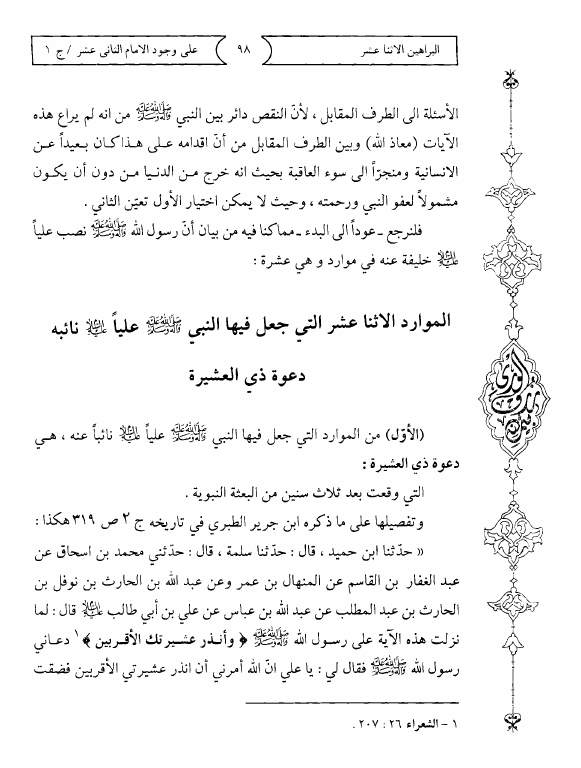 البراهين الاثنا عشر ٩٨ على وجود الامام الثانى عشر / ج ١
الأسئلة الى الطرف المقابل ، لأنّ النقص دائر بين النبي ﷺ من انه لم يراع هذه
الآيات (معاذ الله) وبين الطرف المقابل من أنّ اقدامه على هذا كان بعيداً عن
الانسانية ومنجرّاً الى سوء العاقبة بحيث انه خرج من الدنيا من دون أن يكون
مشمولاً لعفو النبي ورحمته ، وحيث لا يمكن اختيار الأول تعيّن الثاني .
فلنرجع ـ عوداً الى البدء ـ مماكنا فيه من بيان أنّ رسول الله ﷺ نصب علياً
عليه السلام خليفة عنه في موارد و هي عشرة :
الموارد الاثنا عشر التي جعل فيها النبي ﷺ علياً عليه السلام نائبه
دعوة ذي العشيرة
(الأوّل) من الموارد التي جعل فيها النبي ﷺ علياً عليه السلام نائباً عنه ، هـي
دعوة ذي العشيرة :
التي وقعت بعد ثلاث سنين من البعثة النبوية .
وتفصيلها على ما ذكره ابن جرير الطبري في تاريخه ج ٢ ص ٣١٩ هكذا :
« حدّثنا ابن حميد ، قال : حدّثنا سلمة ، قال : حدّثني محمد بن اسحاق عن
عبد الغفار بن القاسم عن المنهال بن عمر وعن عبد الله بن الحارث بن نوفل بن
الحارث بن عبد المطلب عن عبد الله بن عباس عن علي بن أبي طالب عليه السلام قال : لما
نزلت هذه الآية على رسول الله ﷺ ﴿ وأنذر عشيرتك الأقربين ﴾ ١ دعـاني
رسول الله ﷺ فقال لي : يا علي انّ الله أمرني أن انذر عشيرتي الأقربين فضقت
١ - الشعراء ٢٦ : ٢٠٧ .